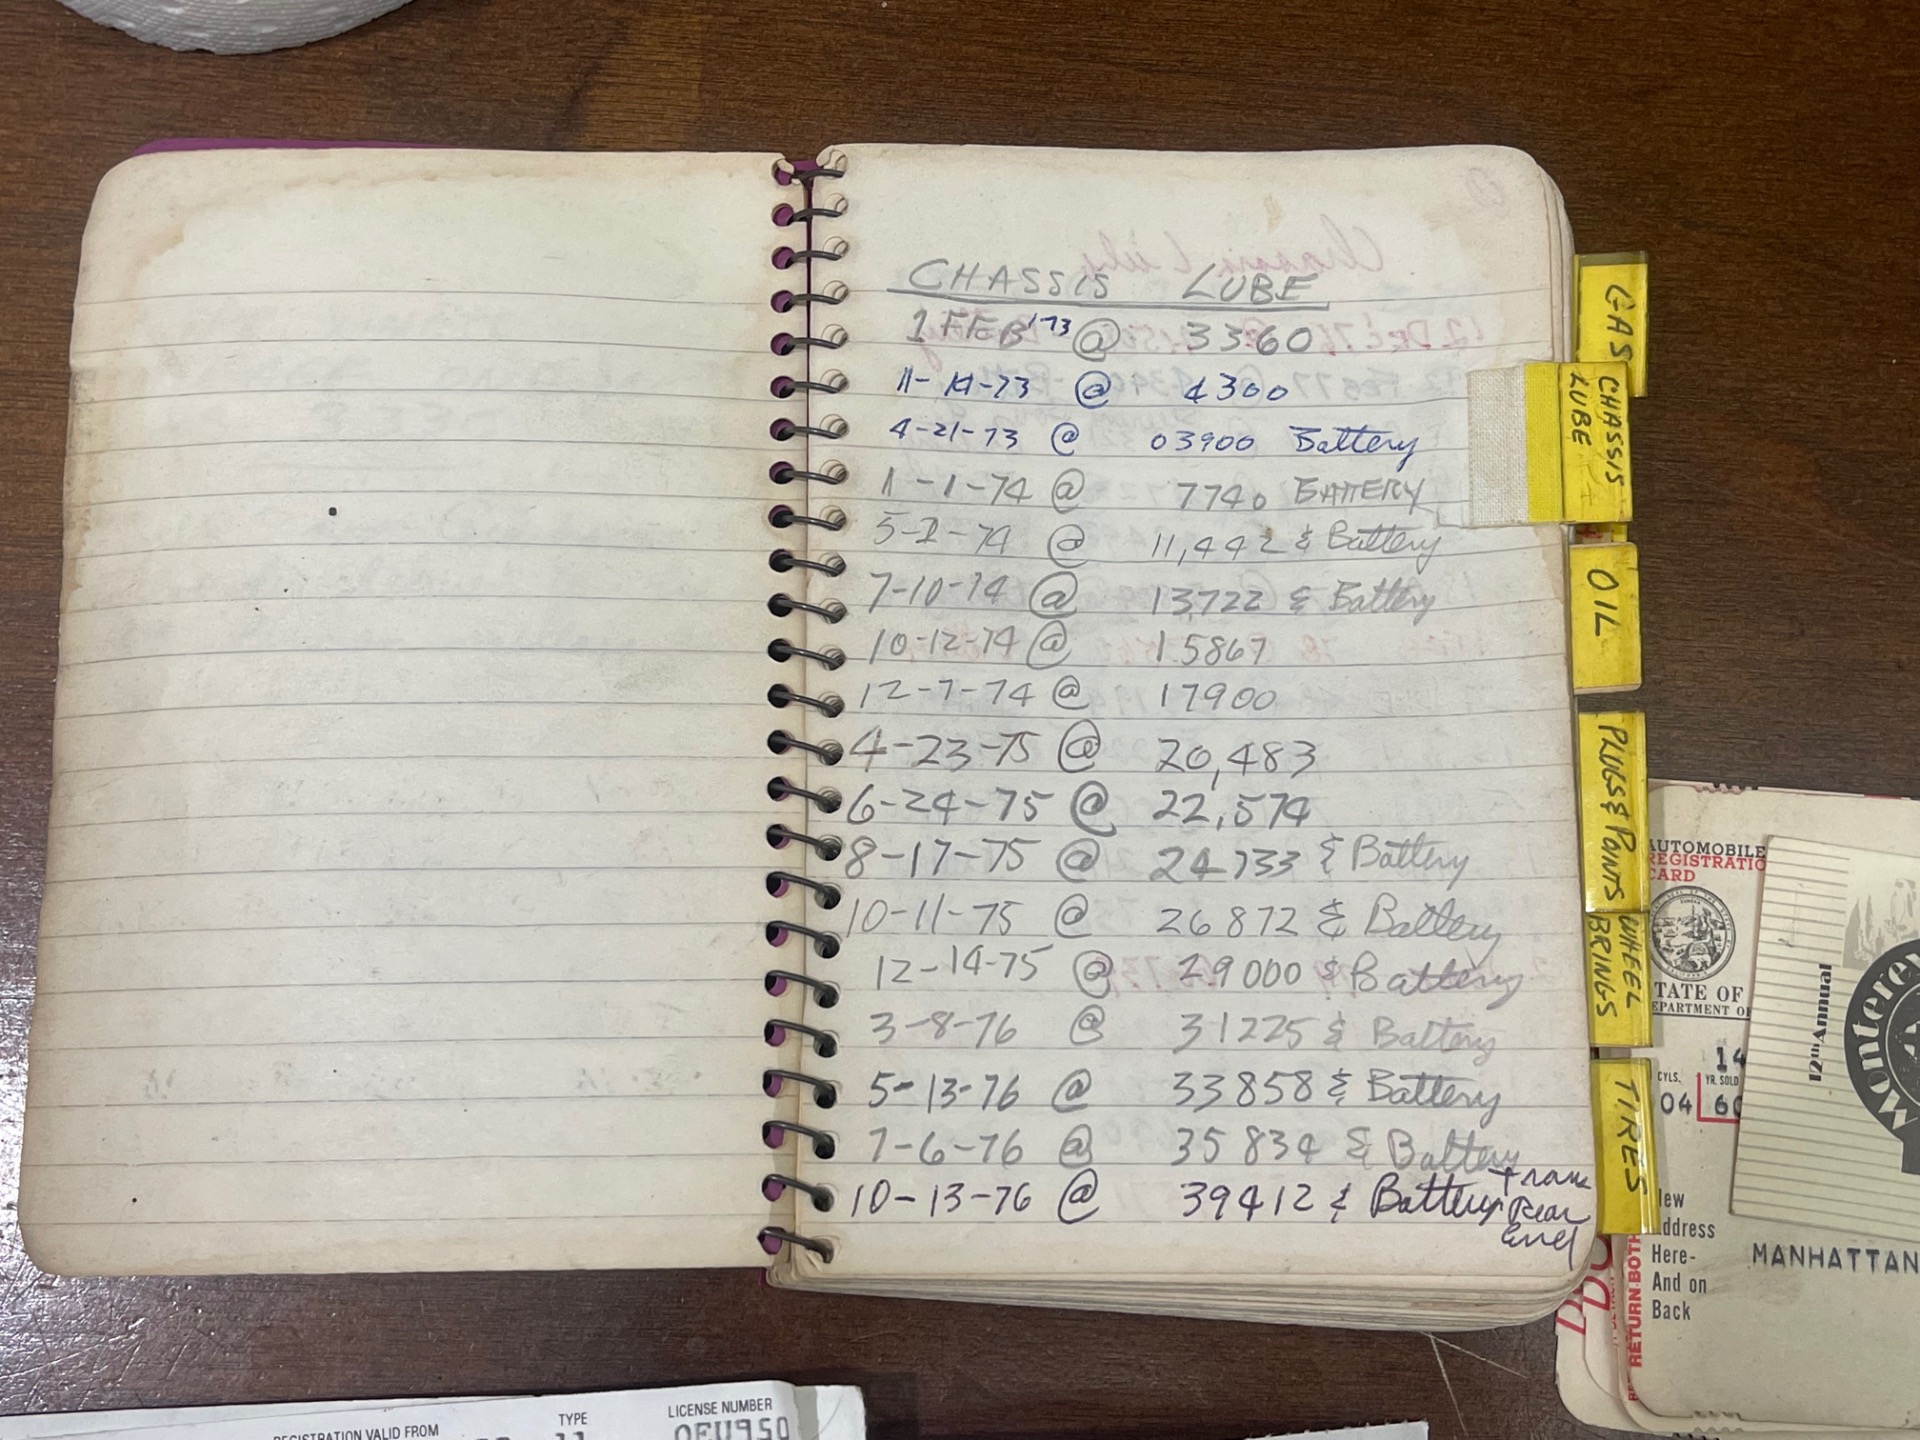 CHASSIS LUBE
1 FEB '73 @ 3360
@ 4300
4-21-73 @ 03900 Battery
1-1-74 @ 7740 BATTERY
5-2-74 @ 11,442 & Battery
7-10-74 @ 13,722 & Battery
10-12-74 @ 15867
12-7-74 @ 17900
4-23-75 @ 20,483
6-24-75 @ 22,574
8-17-75 @ 24733 & Battery
10-11-75 @ 26872 & Battery
12-14-75 @ 29000 & Battery
3-8-76 @ 31225 & Battery
5-13-76 @ 33858 & Battery
7-6-76 @ 35834 & Battery
10-13-76 @ 39412 & Battery + Trans
Rear
End
GAS
CHASSIS
LUBE
OIL
PLUGS & POINTS
WHEEL
BRINGS
TIRES
AUTOMOBILE
REGISTRATIO
CARD
STATE OF
DEPARTMENT OF
14
CYLS.
YR. SOLD
04
60
New
Address
Here-
And on
Back
RETURN BOTH
12th Annual
Monterey
MANHATTAN
REGISTRATION VALID FROM
TYPE
11
LICENSE NUMBER
OEU950